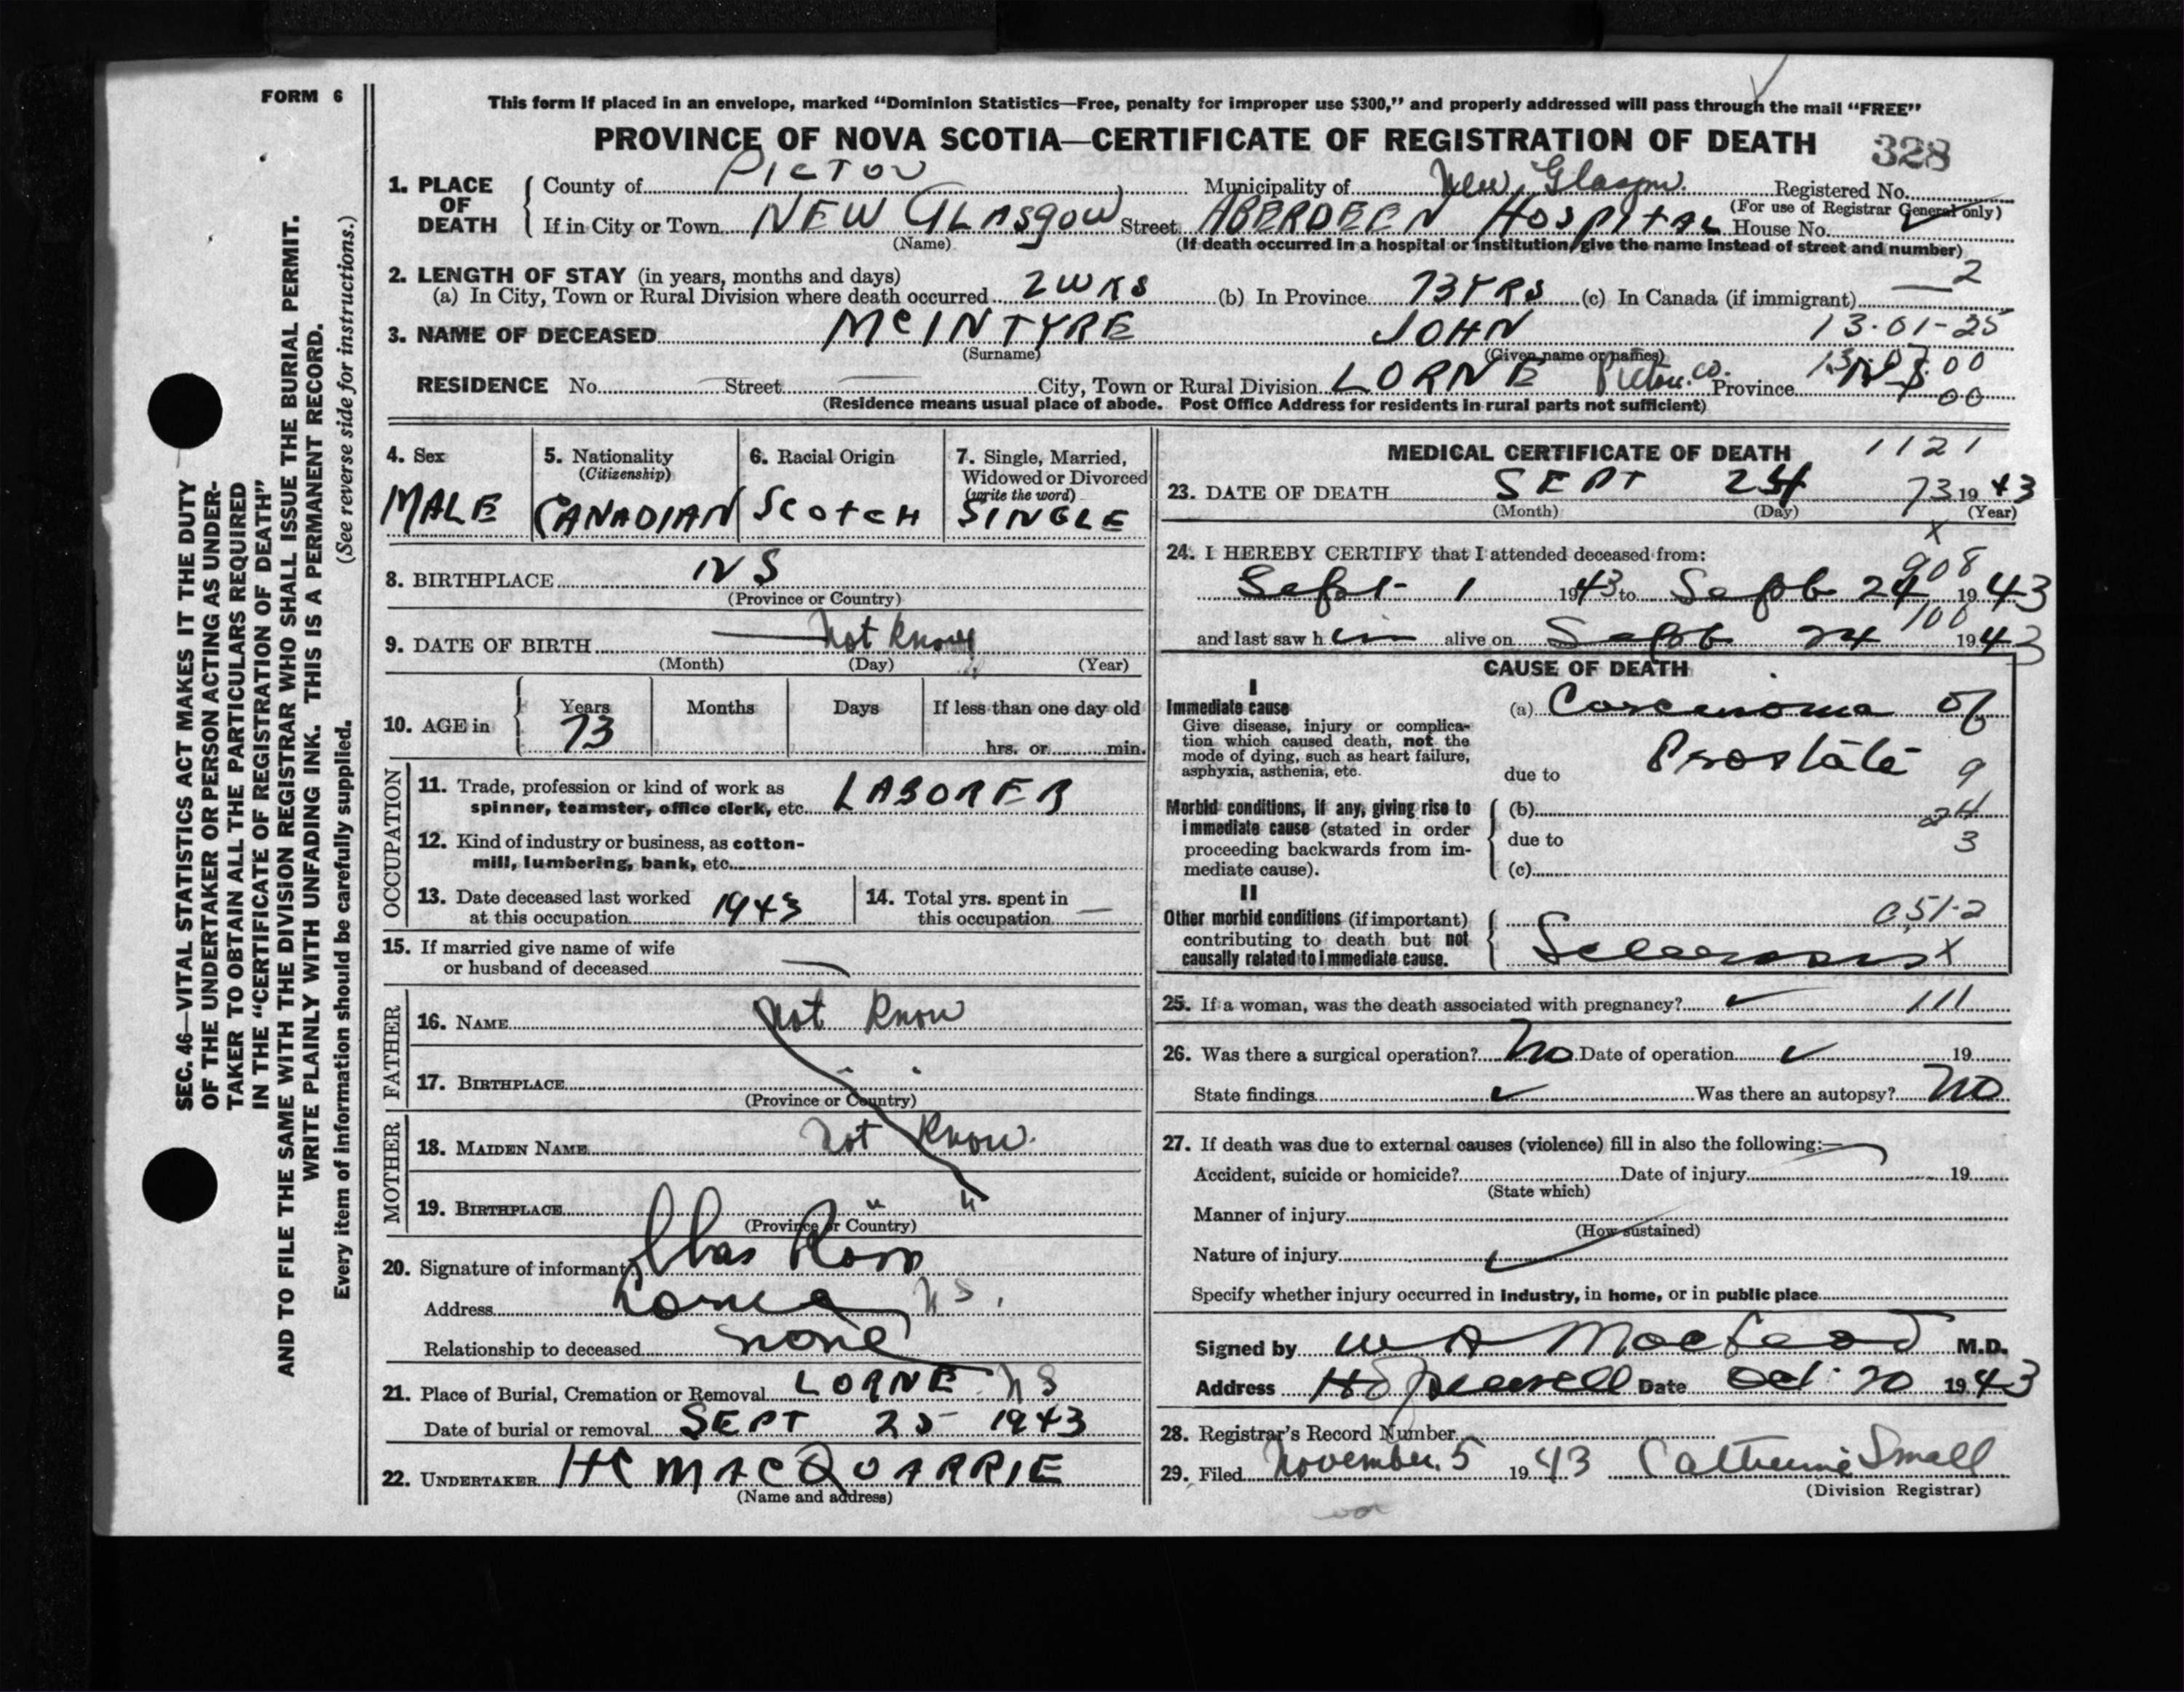 FORM 6
SEC. 46—VITAL STATISTICS ACT MAKES IT THE DUTY
OF THE UNDERTAKER OR PERSON ACTING AS UNDER-
TAKER TO OBTAIN ALL THE PARTICULARS REQUIRED
IN THE "CERTIFICATE OF REGISTRATION OF DEATH"
AND TO FILE THE SAME WITH THE DIVISION REGISTRAR WHO SHALL ISSUE THE BURIAL PERMIT.
WRITE PLAINLY WITH UNFADING INK. THIS IS A PERMANENT RECORD.
Every item of information should be carefully supplied. (See reverse side for instructions.)
This form if placed in an envelope, marked "Dominion Statistics—Free, penalty for improper use $300," and properly addressed will pass through the mail "FREE"
PROVINCE OF NOVA SCOTIA—CERTIFICATE OF REGISTRATION OF DEATH 328
1. PLACE OF DEATH County of PICTOU Municipality of New Glasgow. Registered No.
(For use of Registrar General only)
If in City or Town NEW GLASGOW Street ABERDEEN HOSPITAL House No.
(Name) (If death occurred in a hospital or institution, give the name instead of street and number)
2. LENGTH OF STAY (in years, months and days) 2
(a) In City, Town or Rural Division where death occurred 2 WKS (b) In Province 73 YRS (c) In Canada (if immigrant) —
3. NAME OF DECEASED MCINTYRE JOHN 13-01-25
(Surname) (Given name or names)
RESIDENCE No. — Street — City, Town or Rural Division LORNE Pictou. Co. Province N-S 00
00
(Residence means usual place of abode. Post Office Address for residents in rural parts not sufficient)
4. Sex
MALE
5. Nationality
(Citizenship)
CANADIAN
6. Racial Origin
SCOTCH
7. Single, Married,
Widowed or Divorced
(write the word)
SINGLE
8. BIRTHPLACE NS
(Province or Country)
9. DATE OF BIRTH — Not Know
(Month) (Day) (Year)
10. AGE in Years Months Days If less than one day old
73 hrs. or min.
OCCUPATION
11. Trade, profession or kind of work as
spinner, teamster, office clerk, etc. LABORER
12. Kind of industry or business, as cotton-
mill, lumbering, bank, etc.
13. Date deceased last worked
at this occupation 1943
14. Total yrs. spent in
this occupation —
15. If married give name of wife
or husband of deceased —
FATHER
16. NAME Not Know
17. BIRTHPLACE " "
(Province or Country)
MOTHER
18. MAIDEN NAME Not Know.
19. BIRTHPLACE " "
(Province or Country)
20. Signature of informant Chas Ross
Address Lorne N S.
Relationship to deceased none
21. Place of Burial, Cremation or Removal LORNE N S
Date of burial or removal SEPT 25 1943
22. UNDERTAKER HC MACQUARRIE
(Name and address)
MEDICAL CERTIFICATE OF DEATH 1121
23. DATE OF DEATH SEPT 24 73 1943
(Month) (Day) (Year)
x
24. I HEREBY CERTIFY that I attended deceased from:
908
Sept 1 1943 to Sept 24 1943
100
and last saw him alive on Sept 24 1943
CAUSE OF DEATH
I
Immediate cause
Give disease, injury or complica-
tion which caused death, not the
mode of dying, such as heart failure,
asphyxia, asthenia, etc.
(a) Carcinoma of
due to Prostate 9
Morbid conditions, if any, giving rise to
immediate cause (stated in order
proceeding backwards from im-
mediate cause).
(b) 24
due to 3
(c)
II
Other morbid conditions (if important)
contributing to death but not
causally related to immediate cause.
051-2
Sclerosis x
25. If a woman, was the death associated with pregnancy? ✓ 111
26. Was there a surgical operation? No Date of operation ✓ 19
State findings ✓ Was there an autopsy? No
27. If death was due to external causes (violence) fill in also the following:—
Accident, suicide or homicide? Date of injury 19
(State which)
Manner of injury
(How sustained)
Nature of injury ✓
Specify whether injury occurred in industry, in home, or in public place
Signed by W A MacLeod M.D.
Address Hopewell Date Oct. 20 1943
28. Registrar's Record Number
29. Filed November 5 1943 Catherine Small
(Division Registrar)